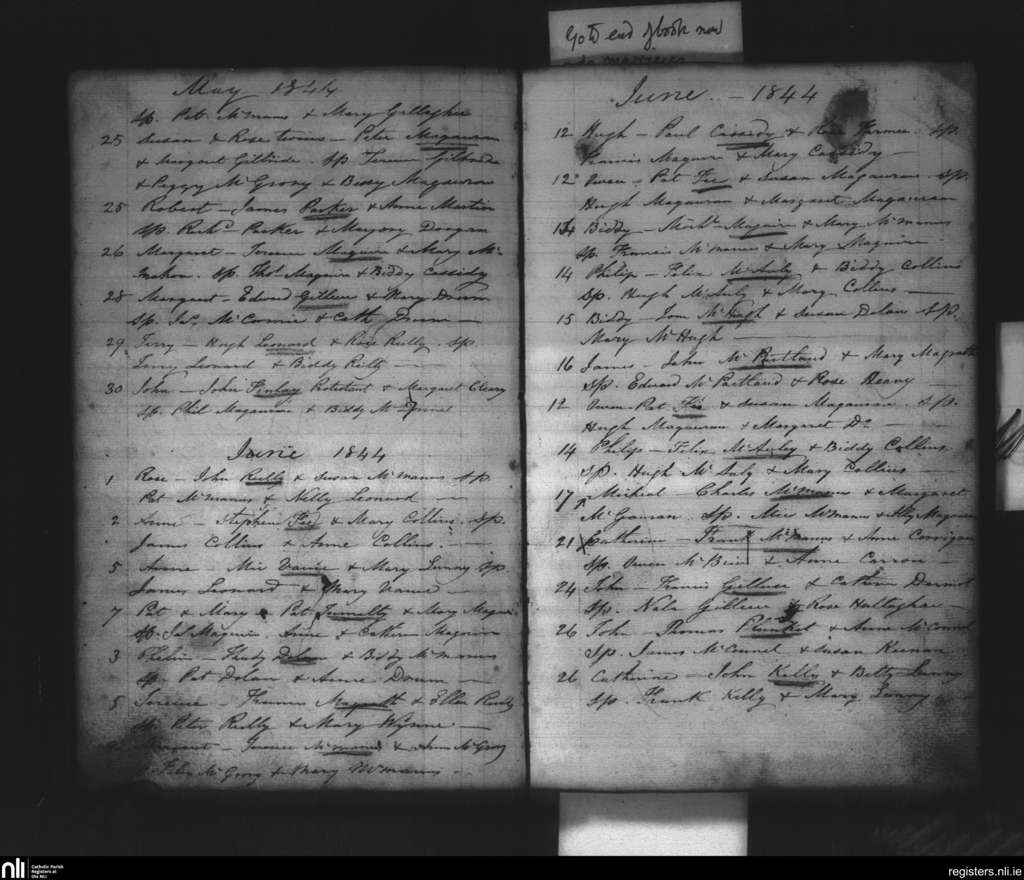 Go to end of book now
May 1844
Sp. Pat McManus & Mary Gallagher
25 Susan & Rose twins - Peter Magauran
& Margaret Gilbride. Sp Terence Gilbride
& Peggy McGrory & Bessy Magauran
25 Robert - James Parker & Anne Martin
Sp. Richd Parker & Marjory Doogan
26 Margaret - Terence Maguire & Mary Mc
mahon. Sp. Thos Maguire & Biddy Cassidy
28 Margaret - Edward Gilleece & Mary Drum
Sp. Jas & Cath Drum
29 Terry - Hugh Leonard & Rose Reilly. Sp.
Terry Leonard & Biddy Reilly
30 John - John Finlay Protestant & Margaret Cleary
Sp. Phil Magauran & Biddy
June 1844
1 Rose - John Reilly & Susan McManus Sp
Pat McManus & Nelly Leonard
2 Anne - Stephen Fee & Mary Collins. Sp.
James Collins & Anne Collins.
5 Anne - Mic & Mary Lunny Sp
James Leonard & Mary
7 Pat & Mary - Pat & Mary Maguire
Sp. Jas Maguire. Anne & Cathern Maguire
3 Phelim - Dolan & Biddy McManus
Sp. Pat Dolan & Anne Drum
5 Terence - Thomas Magrath & Ellen Reilly
Sp. Peter Reilly & Mary Wynne
Margaret - Terence McManus & Anne McGrory
Felix McGrory & Mary McManus
June - 1844
12 Hugh - Paul Cassidy & Rose Sp.
Francis Maguire & Mary Cassidy
12 Owen - Pat Fee & Susan Magauran Sp.
Hugh Magauran & Margaret Magauran
14 Biddy - Michl Maguire & Mary McManus
Sp. Francis McManus & Mary Maguire
14 Philip - Felix McAuly & Biddy Collins
Sp. Hugh McAuly & Mary Collins
15 Biddy - Tom McHugh & Susan Dolan Sp.
Mary McHugh
16 James - John McPartland & Mary Magrath
Sp. Edward McPartland & Rose Keany
12 Owen - Pat Fee & Susan Magauran Sp.
Hugh Magauran & Margaret Do
14 Philip - Felix McAuley & Biddy Collins
Sp. Hugh McAuly & Mary Collins
17 Micheal - Charles McManus & Margaret
McGauran Sp. Mic McManus &
21 Catherine - Frank McManus & Anne Corrigan
Sp. Owen McBrien & Anne Carron
24 John - Francis Gilleece & Cathern Dermot
Sp. Nela Gilleece & Rose Hallaghan
26 John - Thomas Plunket & Anne McConnel
Sp. James McConnel & Susan Keenan
26 Catherine - John Kelly & Betty Lunny
Sp. Frank Kelly & Mary Lunny
nli Catholic Parish
Registers at
the NLI
registers.nli.ie